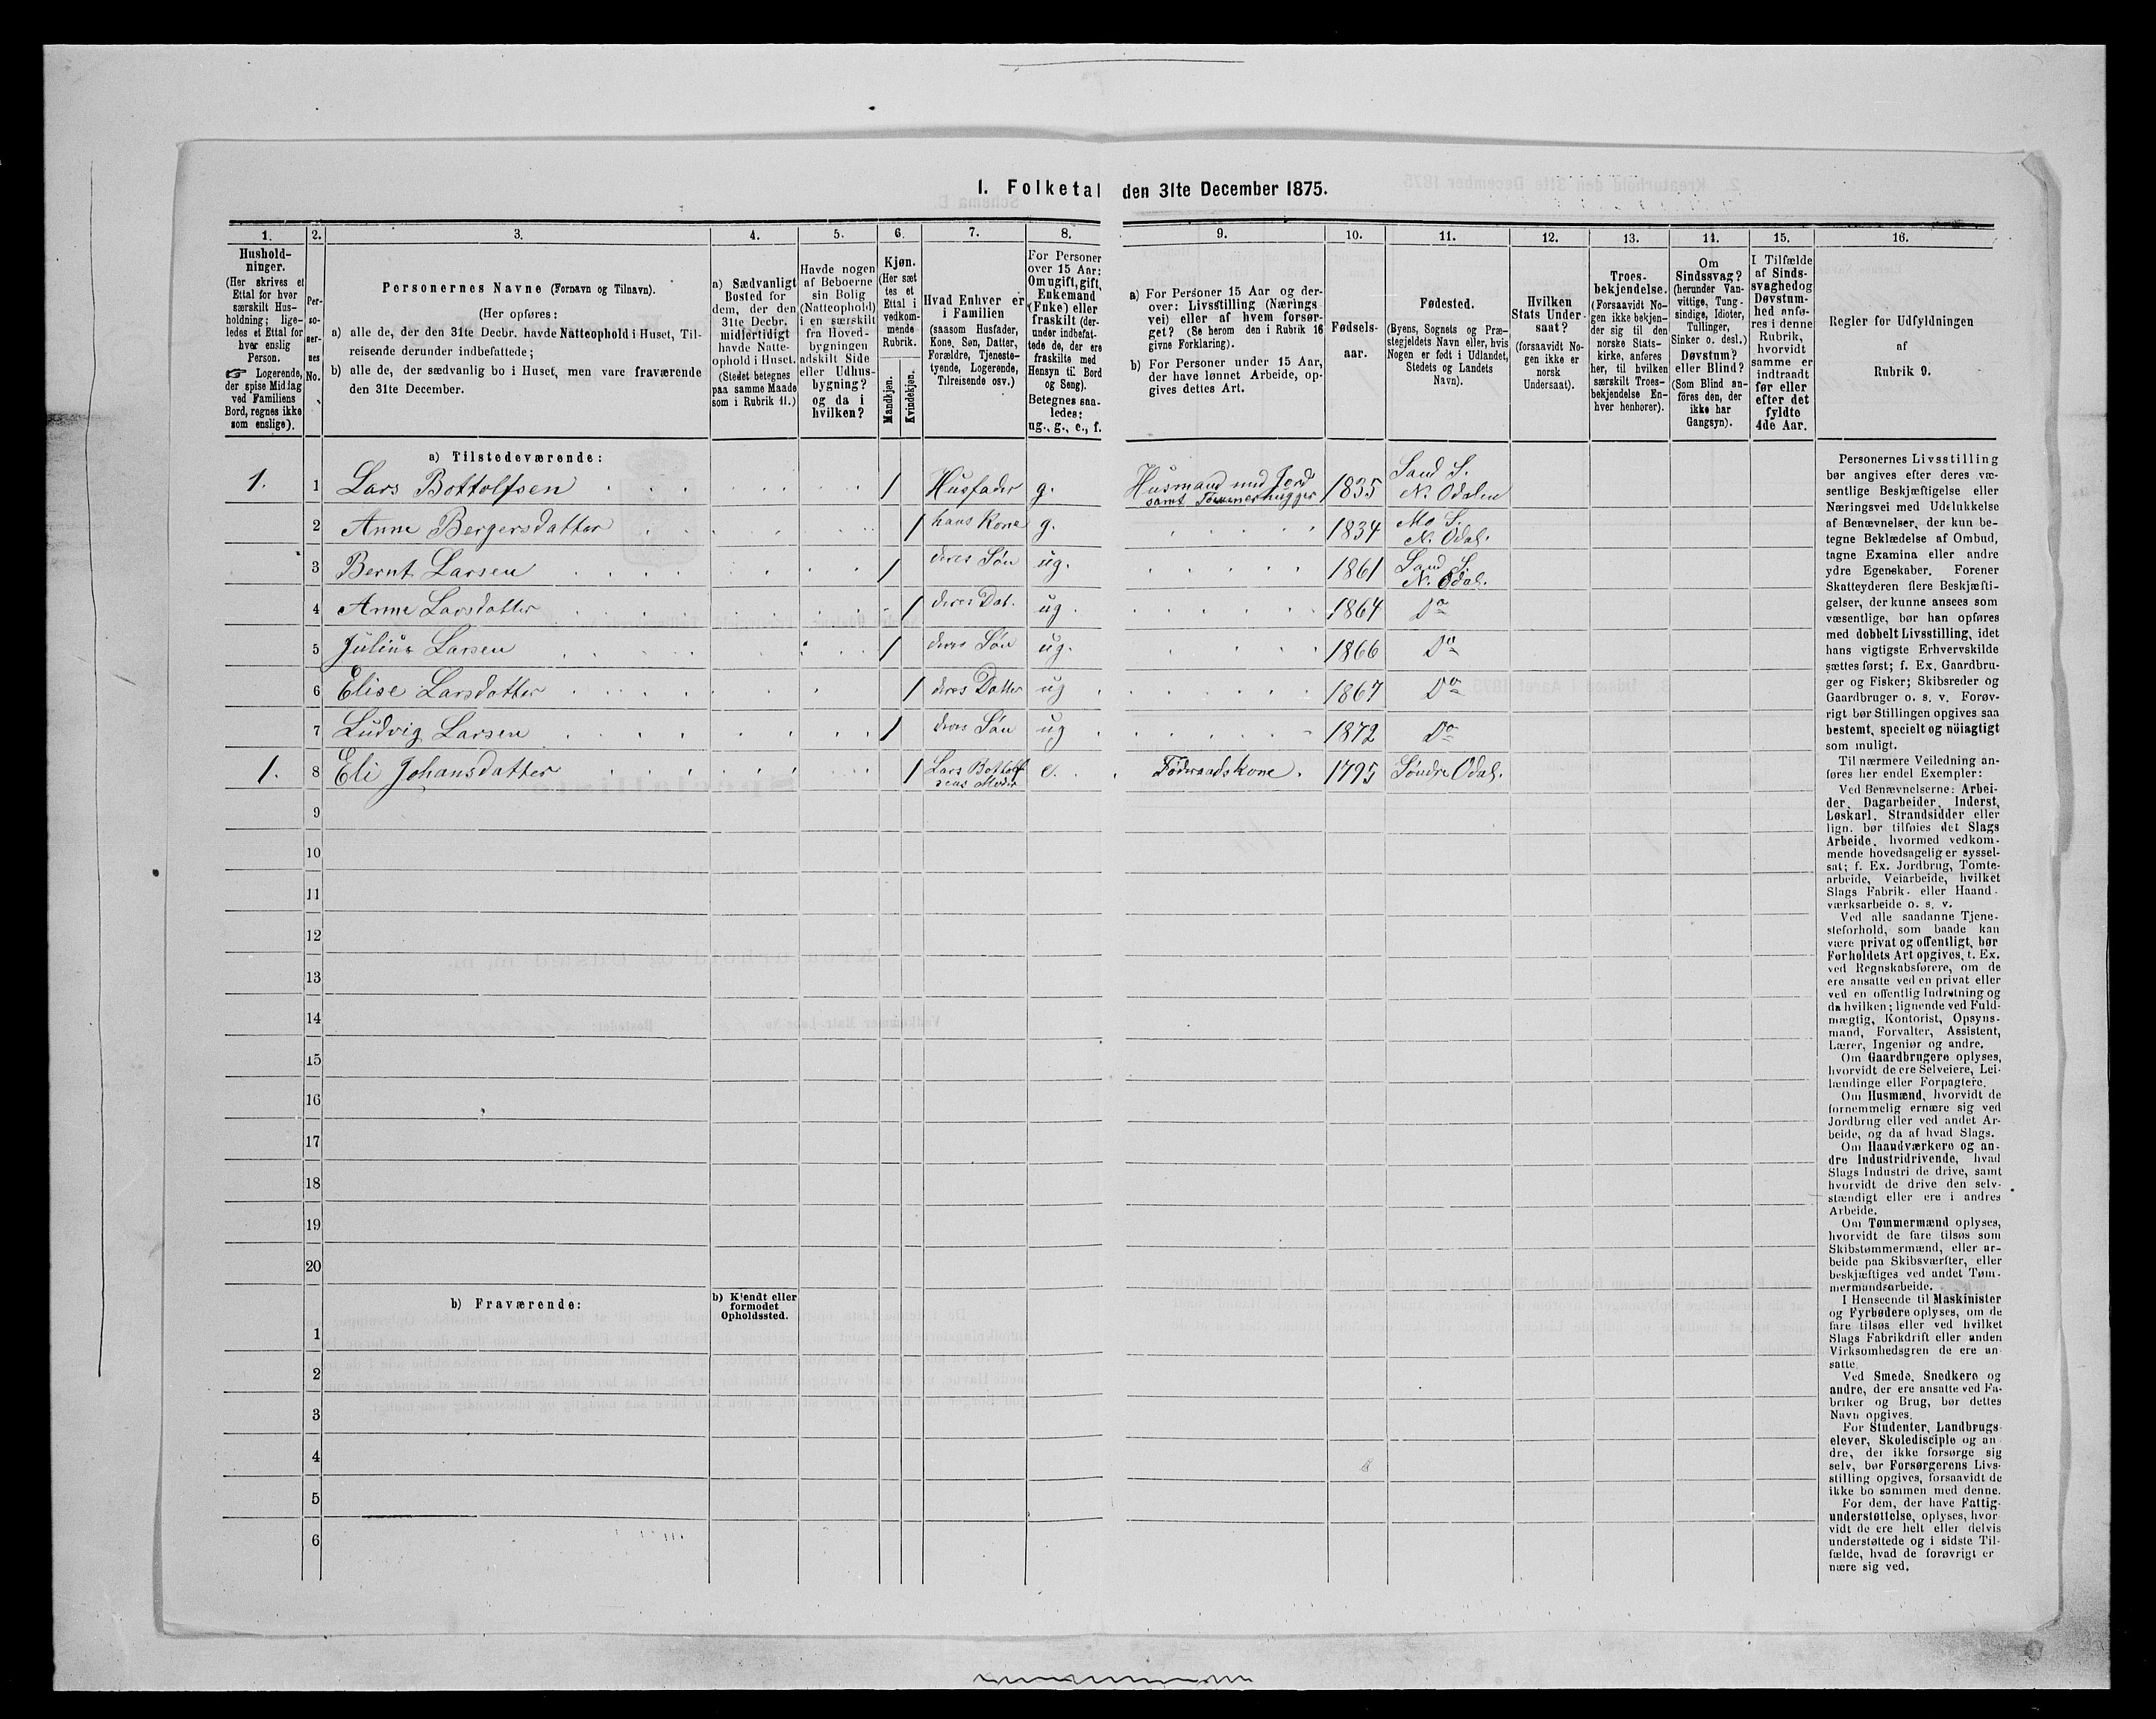 1. Folketal den 31te December 1875.
1. 2. 3. 4. 5. 6. 7. 8. 9. 10. 11. 12. 13. 14. 15. 16.
Hushold-
ninger.
(Her skrives et
Ettal for hver
særskilt Hus-
holdning; lige-
ledes et Ettal for
hver enslig
Person.
☞ Logerende,
der spise Middag
ved Familiens
Bord, regnes ikke
som enslige).
Per-
so-
ner-
nes
No.
Personernes Navne (Fornavn og Tilnavn).
(Her opføres:
a) alle de, der den 31te Decbr. havde Natteophold i Huset, Til-
reisende derunder indbefattede;
b) alle de, der sædvanlig bo i Huset, men vare fraværende
den 31te December.
a) Sædvanligt
Bosted for
dem, der den
31te Decbr.
midlertidigt
havde Natte-
ophold i Huset.
(Stedet betegnes
paa samme Maade
som i Rubrik 11.)
Havde nogen
af Beboerne
sin Bolig
(Natteophold)
i en særskilt
fra Hoved-
bygningen
adskilt Side
eller Udhus-
bygning?
og da i
hvilken?
Kjøn.
(Her sæt
tes et
Ettal i
vedkom-
mende
Rubrik.
Mandkjøn.
Kvindekjøn.
Hvad Enhver er
i Familien
(saasom Husfader,
Kone, Søn, Datter,
Forældre, Tjeneste-
tyende, Logerende,
Tilreisende osv.)
For Personer
over 15 Aar:
Om ugift, gift,
Enkemand
(Enke) eller
fraskilt (der-
under indbefat-
tede de, der ere
fraskilte med
Hensyn til Bord
og Seng).
Betegnes saa-
ledes:
ug., g., e., f.
a) For Personer 15 Aar og der-
over: Livsstilling (Nærings
vei) eller af hvem forsør-
get? (Se herom den i Rubrik 16
givne Forklaring).
b) For Personer under 15 Aar,
der have lønnet Arbeide, op-
gives dettes Art.
Fødsels-
aar.
Fødested.
(Byens, Sognets og Præ-
stegjeldets Navn eller, hvis
Nogen er født i Udlandet,
Stedets og Landets
Navn).
Hvilken
Stats Under-
saat?
(forsaavidt No-
gen ikke er
norsk
Undersaat).
Troes-
bekjendelse.
(Forsaavidt No-
gen ikke bekjen-
der sig til den
norske Stats-
kirke, anføres
her, til hvilken
særskilt Troes-
bekjendelse En-
hver henhører).
Om
Sindssvag?
(herunder Van-
vittige, Tung-
sindige, Idioter,
Tullinger,
Sinker o. desl.)
Døvstum?
eller Blind?
(Som Blind an-
föres den, der
ikke har
Gangsyn).
I Tilfælde
af Sinds-
svaghed og
Døvstum-
hed anfø-
res i denne
Rubrik,
hvorvidt
samme er
indtraadt
før eller
efter det
fyldte
4de Aar.
Regler for Udfyldningen
af
Rubrik 9.
a) Tilstedeværende:
1. 1 Lars Bottolfsen 1 Husfader g. Husmand med Jord samt Tømmerhugger 1835 Sand S. N. Odalen
2 Anne Bergersdatter 1 hans Kone g. 1834 Mo S. N. Odal.
3 Bernt Larsen 1 deres Søn ug. 1861 Sand S. N. Odal.
4 Anne Larsdatter 1 deres Dat. ug. 1864 Do
5 Julius Larsen 1 deres Søn ug. 1866 Do
6 Elise Larsdatter 1 deres Datter ug 1867 Do
7 Ludvig Larsen 1 deres Søn ug 1872 Do
1. 8 Eli Johansdatter 1 Lars Bottolfsens Moder e. Føderaadskone. 1795 Søndre Odal.
9
10
11
12
13
14
15
16
17
18
19
20
b) Fraværende:
b) Kjendt eller
formodet
Opholdssted.
1
2
3
4
5
6
Personernes Livsstilling
bør angives efter deres væ-
sentlige Beskjæftigelse eller
Næringsvei med Udelukkelse
af Benævnelser, der kun be-
tegne Beklædelse af Ombud,
tagne Examina eller andre
ydre Egenskaber. Forener
Skatteyderen flere Beskjæfti-
gelser, der kunne ansees som
væsentlige, bør han opføres
med dobbelt Livsstilling, idet
hans vigtigste Erhvervskilde
sættes først; f. Ex. Gaardbru-
ger og Fisker; Skibsreder og
Gaardbruger o. s. v. Forøv-
rigt bør Stillingen opgives saa
bestemt, specielt og nöiagtigt
som muligt.
Til nærmere Veiledning an-
føres her endel Exempler:
Ved Benævnelserne: Arbei-
der, Dagarbeider, Inderst,
Løskarl, Strandsidder eller
lign. bør tilføies det Slags
Arbeide, hvormed vedkom-
mende hovedsagelig er syssel-
sat; f. Ex. Jordbrug, Tomte-
arbeide, Veiarbeide, hvilket
Slags Fabrik- eller Haand-
værksarbeide o. s. v.
Ved alle saadanne Tjene-
steforhold, som baade kan
være privat og offentligt, bør
Forholdets Art opgives, f. Ex.
ved Regnskabsførere, om de
ere ansatte ved en privat eller
ved en offentlig Indretning og
da hvilken; lignende ved Fuld-
mægtig, Kontorist, Opsyns-
mand, Forvalter, Assistent,
Lærer, Ingeniør og andre.
Om Gaardbrugere oplyses,
hvorvidt de ere Selveiere, Lei-
lændinge eller Forpagtere.
Om Husmænd, hvorvidt de
fornemmelig ernære sig ved
Jordbrug eller ved andet Ar-
beide, og da af hvad Slags.
Om Haandværkere og an-
dre Industridrivende, hvad
Slags Industri de drive, samt
hvorvidt de drive den selv-
stændigt eller ere i andres
Arbeide.
Om Tømmermænd oplyses,
hvorvidt de fare tilsøs som
Skibstømmermænd, eller ar-
beide paa Skibsværfter, eller
beskjæftiges ved andet Tøm-
mermandsarbeide.
I Henseende til Maskinister
og Fyrbødere oplyses, om de
fare tilsøs eller ved hvilket
Slags Fabrikdrift eller anden
Virksomhedsgren de ere an-
satte.
Ved Smede, Snedkere og
andre, der ere ansatte ved Fa-
briker og Brug, bør dettes
Navn opgives.
For Studenter, Landbrugs-
elever, Skoledisciple og an-
dre, der ikke forsørge sig
selv, bør Forsørgerens Livs-
stilling opgives, forsaavidt de
ikke bo sammen med denne.
For dem, der have Fattig-
understøttelse, oplyses, hvor-
vidt de ere helt eller delvis
understøttede og i sidste Til-
fælde, hvad de forøvrigt er-
nære sig ved.